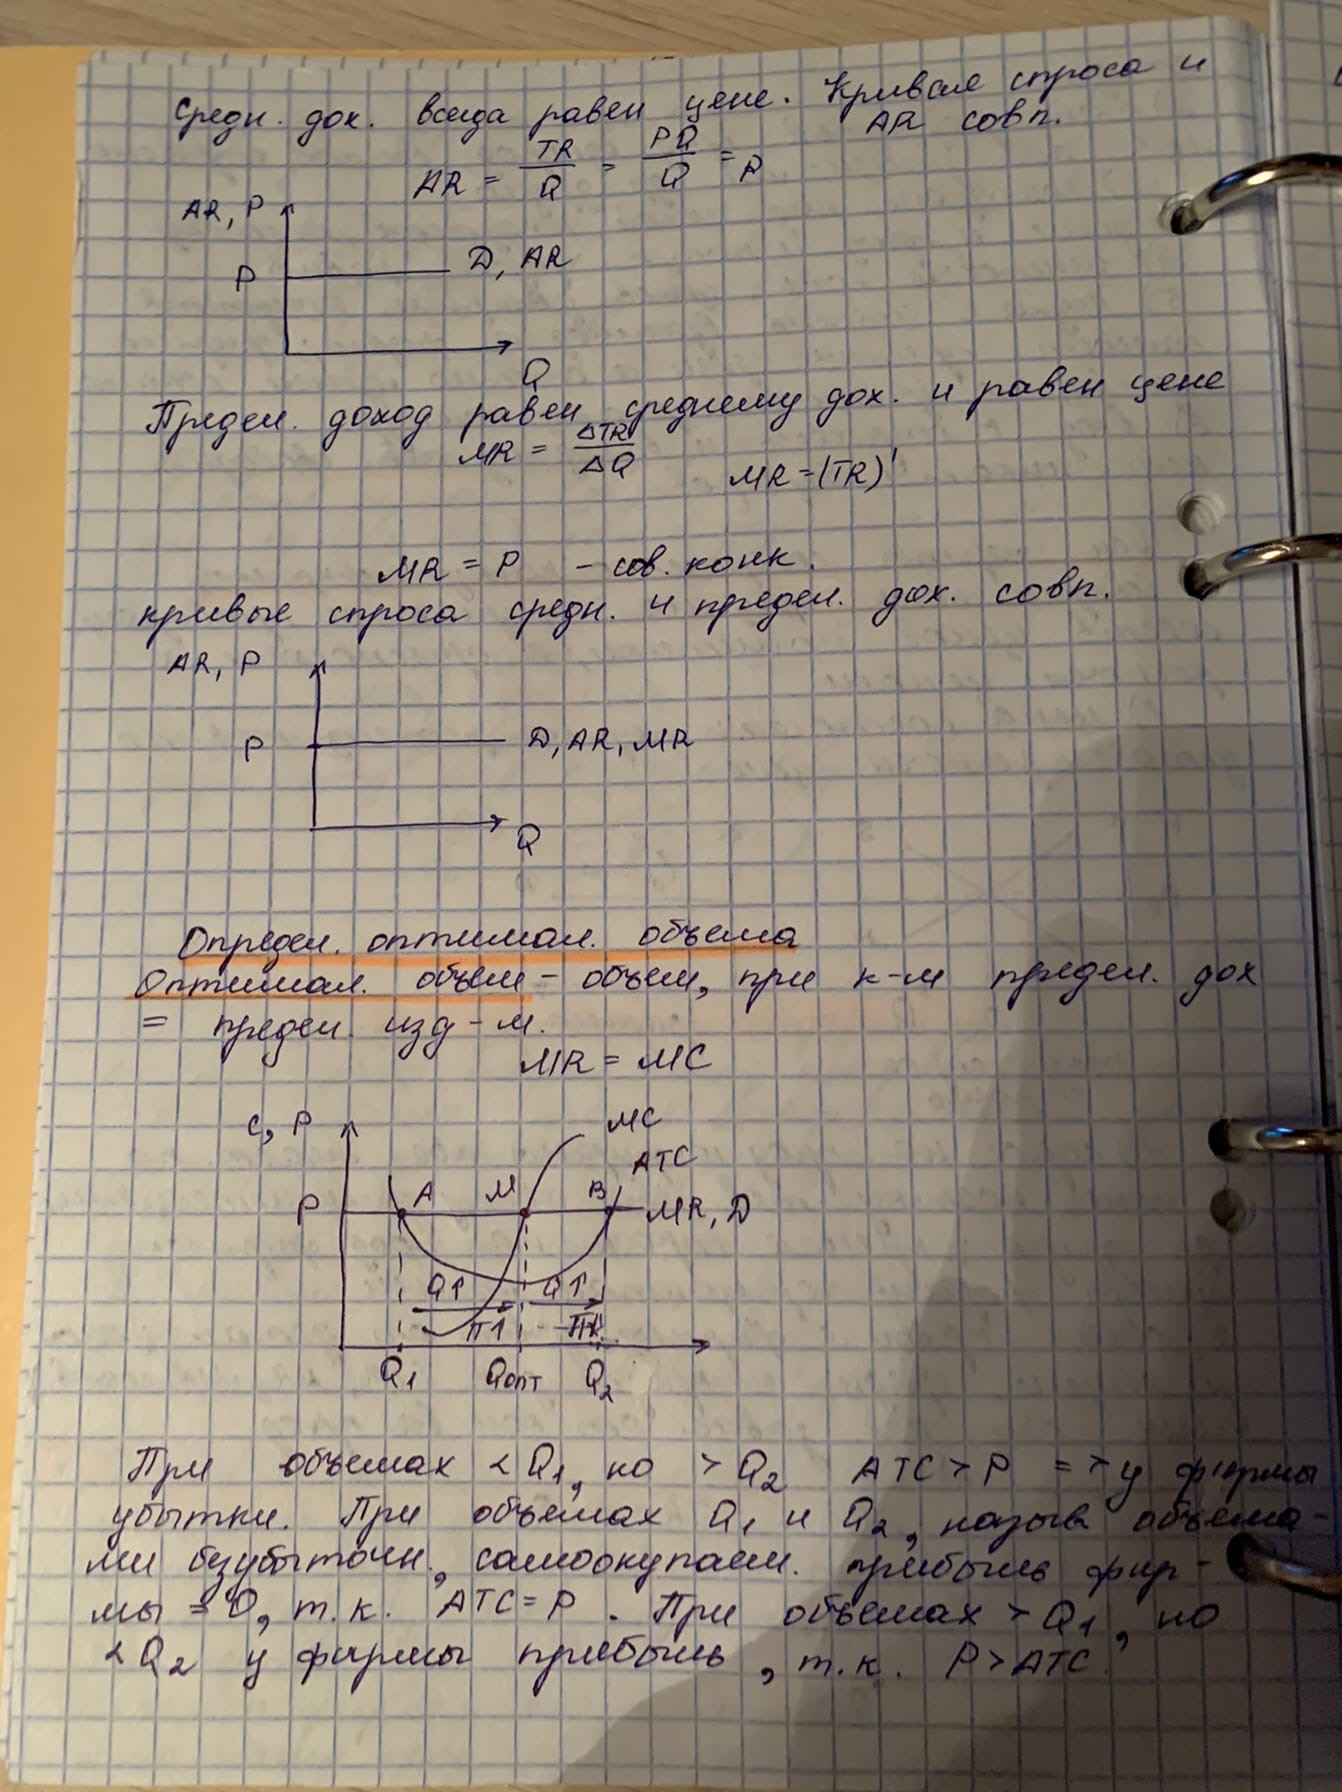 Средн. дох. всегда равен цене. Кривая спроса и
AR совп.
AR = TR/Q = PQ/Q = P
AR, P
P
D, AR
Q
Предел. доход равен среднему дох. и равен цене
MR = ΔTR/ΔQ
MR = (TR)'
MR = P - сов. конк.
кривые спроса средн. и предел. дох. совп.
AR, P
P
D, AR, MR
Q
Определ. оптимал. объема
Оптимал. объем - объем, при к-м предел. дох
= предел. изд-м.
MR = MC
C, P
MC
ATC
P
A
M
B
MR, D
Q↑
Q↑
П↑
П↓
Q1
Qопт
Q2
При объемах < Q1, но > Q2 ATC > P => у фирмы
убытки. При объемах Q1 и Q2, назыв объема-
ми безубыточн, самоокупаем. прибыль фир-
мы = 0, т.к. ATC = P. При объемах > Q1, но
< Q2 у фирмы прибыль, т.к. P > ATC.